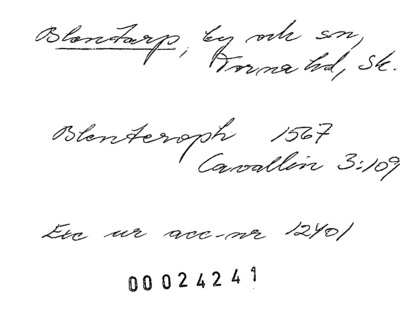 Blentarp, by och sn,
Torna hd, Sk.
Blenteroph 1567
Cavallin 3:109
Exc ur acc-nr 12401
00024241